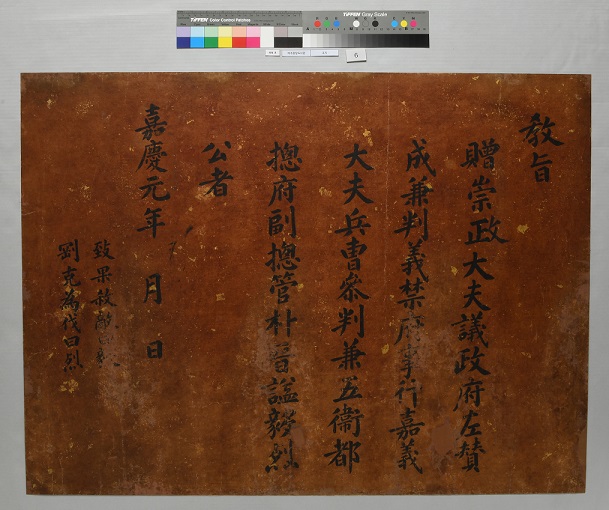 TIFFEN Color Control Patches
TIFFEN Gray Scale
6
敎旨
贈崇政大夫議政府左贊
成兼判義禁府事行嘉義
大夫兵曺叅判兼五衛都
摠府副摠管朴晉謚毅烈
公者
嘉慶元年 月 日
致果殺敵曰毅
劉克為伐曰烈